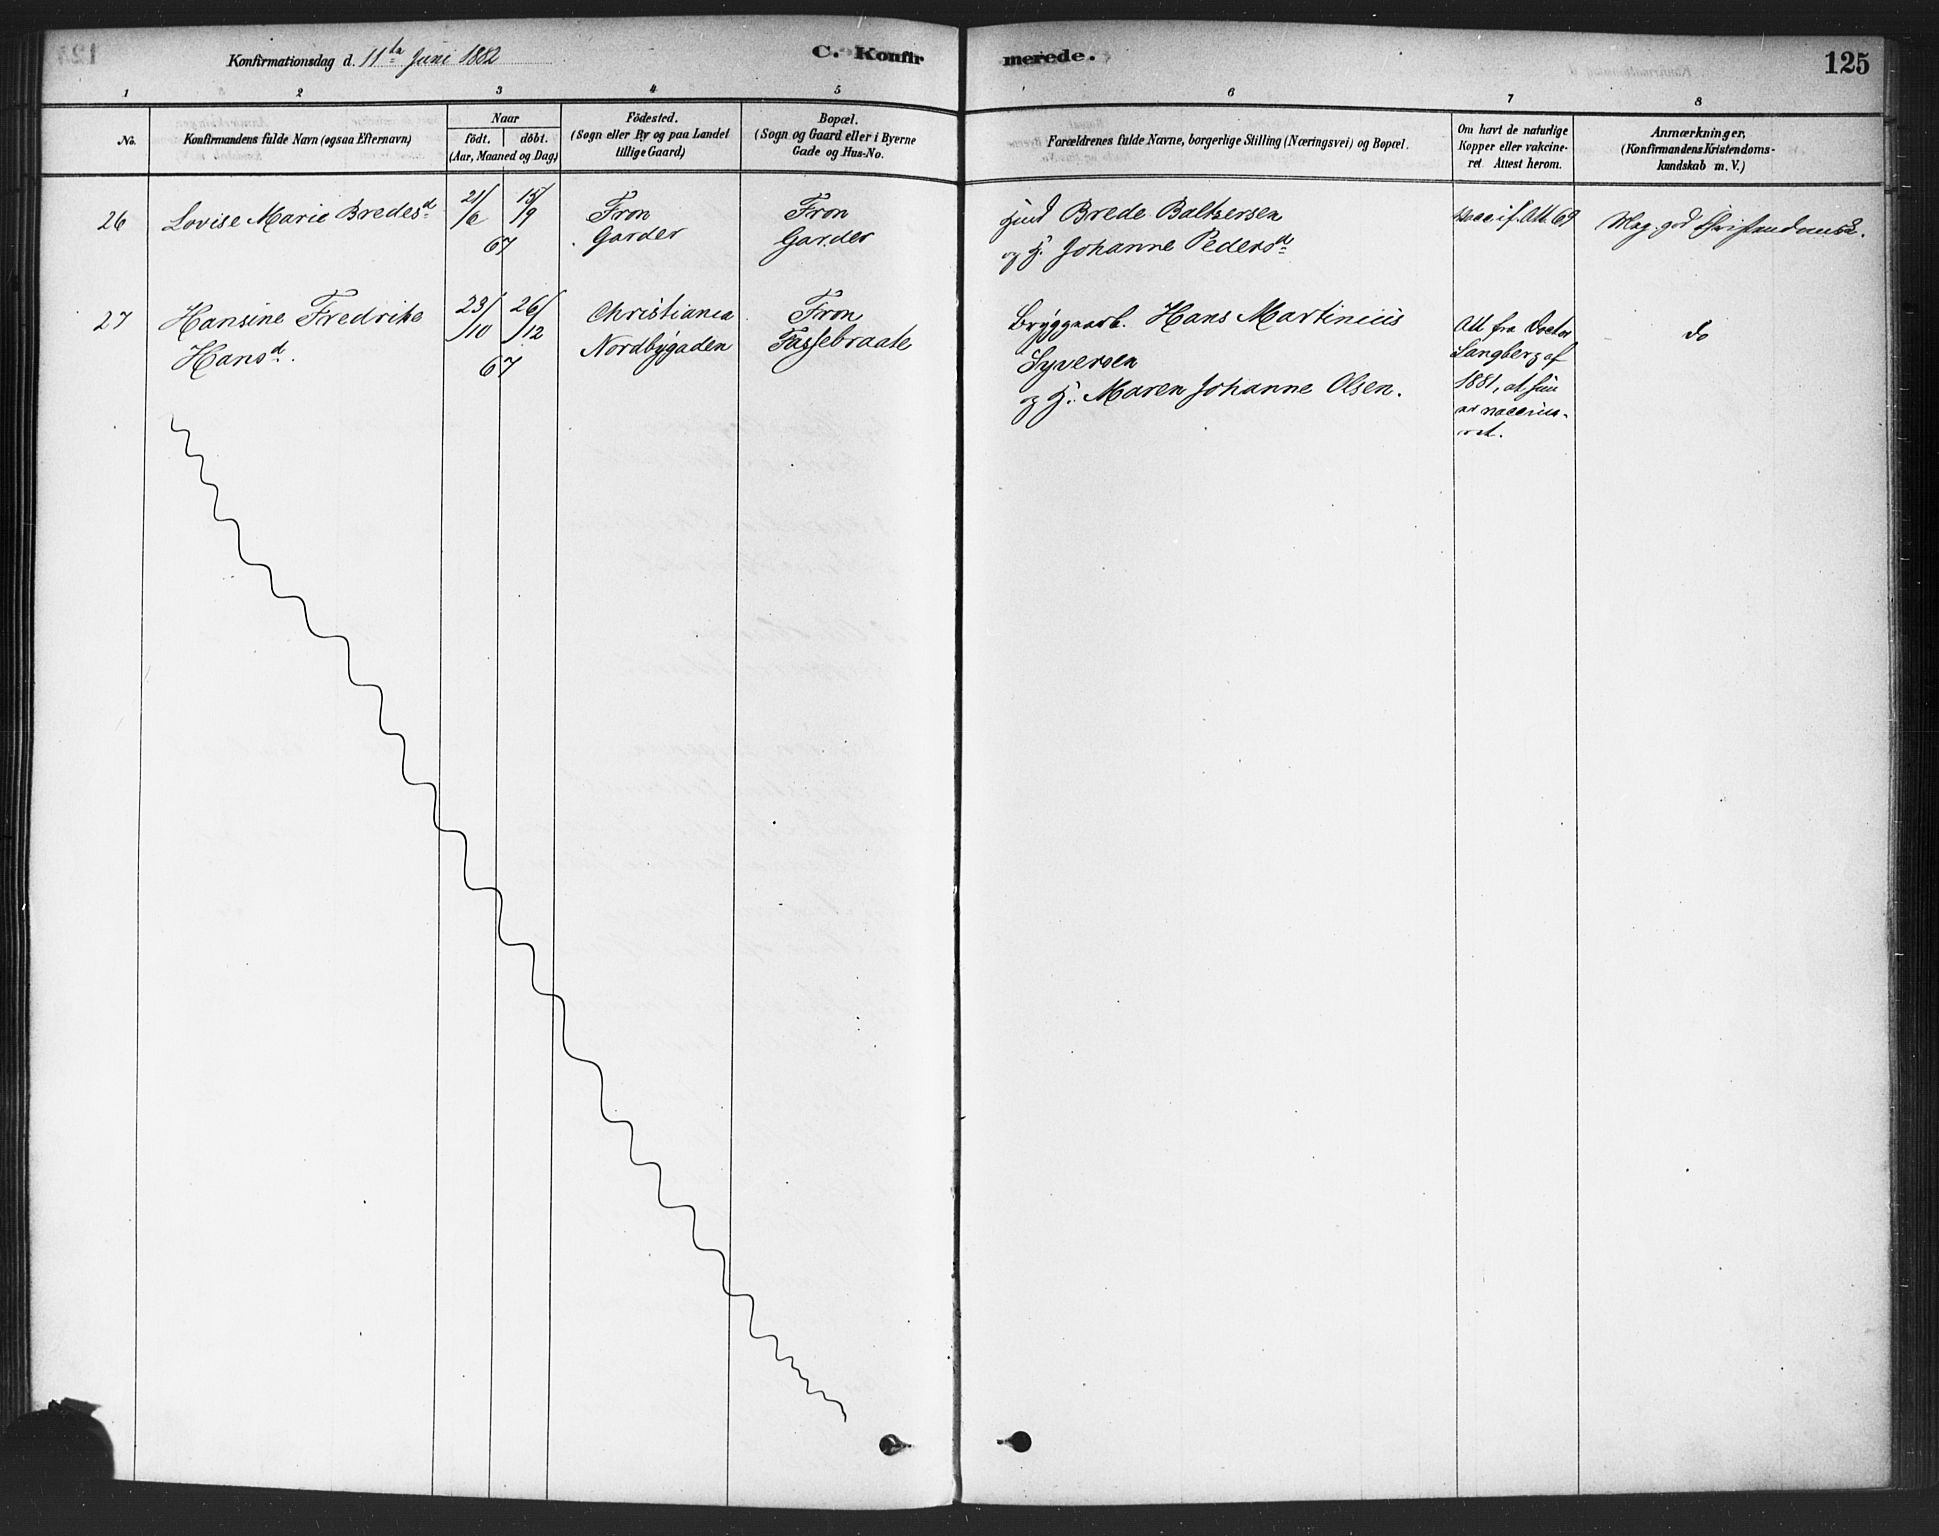 Konfirmationsdag d. 11te Juni 1882
C. Konfirmerede.
125
1 2 3 4 5 6 7 8
No.
Konfirmandens fulde Navn (ogsaa Efternavn)
Naar
födt. döbt.
(Aar, Maaned og Dag)
Födested.
(Sogn eller By og paa Landet
tillige Gaard)
Bopæl.
(Sogn og Gaard eller i Byerne
Gade og Hus-No.
Forældrenes fulde Navne, borgerlige Stilling (Næringsvei) og Bopæl.
Om havt de naturlige
Kopper eller vakcine-
ret. Attest herom.
Anmærkninger,
(Konfirmandens Kristendoms-
kundskab m. V.)
26
Lovise Marie Bredesd.
21/6 15/9
67
Fron
Garder
Fron
Garder
Brede Baltzersen
og H. Johanne Pedersd.
vacc. if. Att. 69
Meg. god Christendomsk.
27
Hansine Fredrike
Hansd.
23/10 26/12
67
Christiania
Nordbygaden
Fron
Fassebraate
Bryggearb. Hans Martinius
Syversen
og H. Maren Johanne Olsen.
Att fra Doctor
Langberg af
1881, at hun
er vaccine-
ret.
do